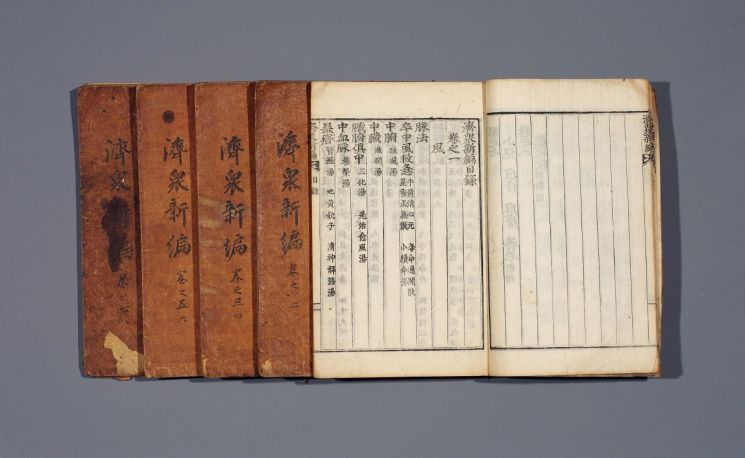 濟衆新編目錄
卷之一
風
脉法
卒中風救急 牛黃淸心元 奪命通關散 星香正氣散 小續命湯
中腑 疎風湯
中臟 滋潤湯
臟腑俱中 三化湯 羌活愈風湯
中血脉 養榮湯
暴瘖 腎瀝湯 地黃飮子 淸神解語湯
目錄
濟衆新編
卷之一二
濟衆新編
卷之三四
濟衆新編
卷之五六
濟衆新編
卷之